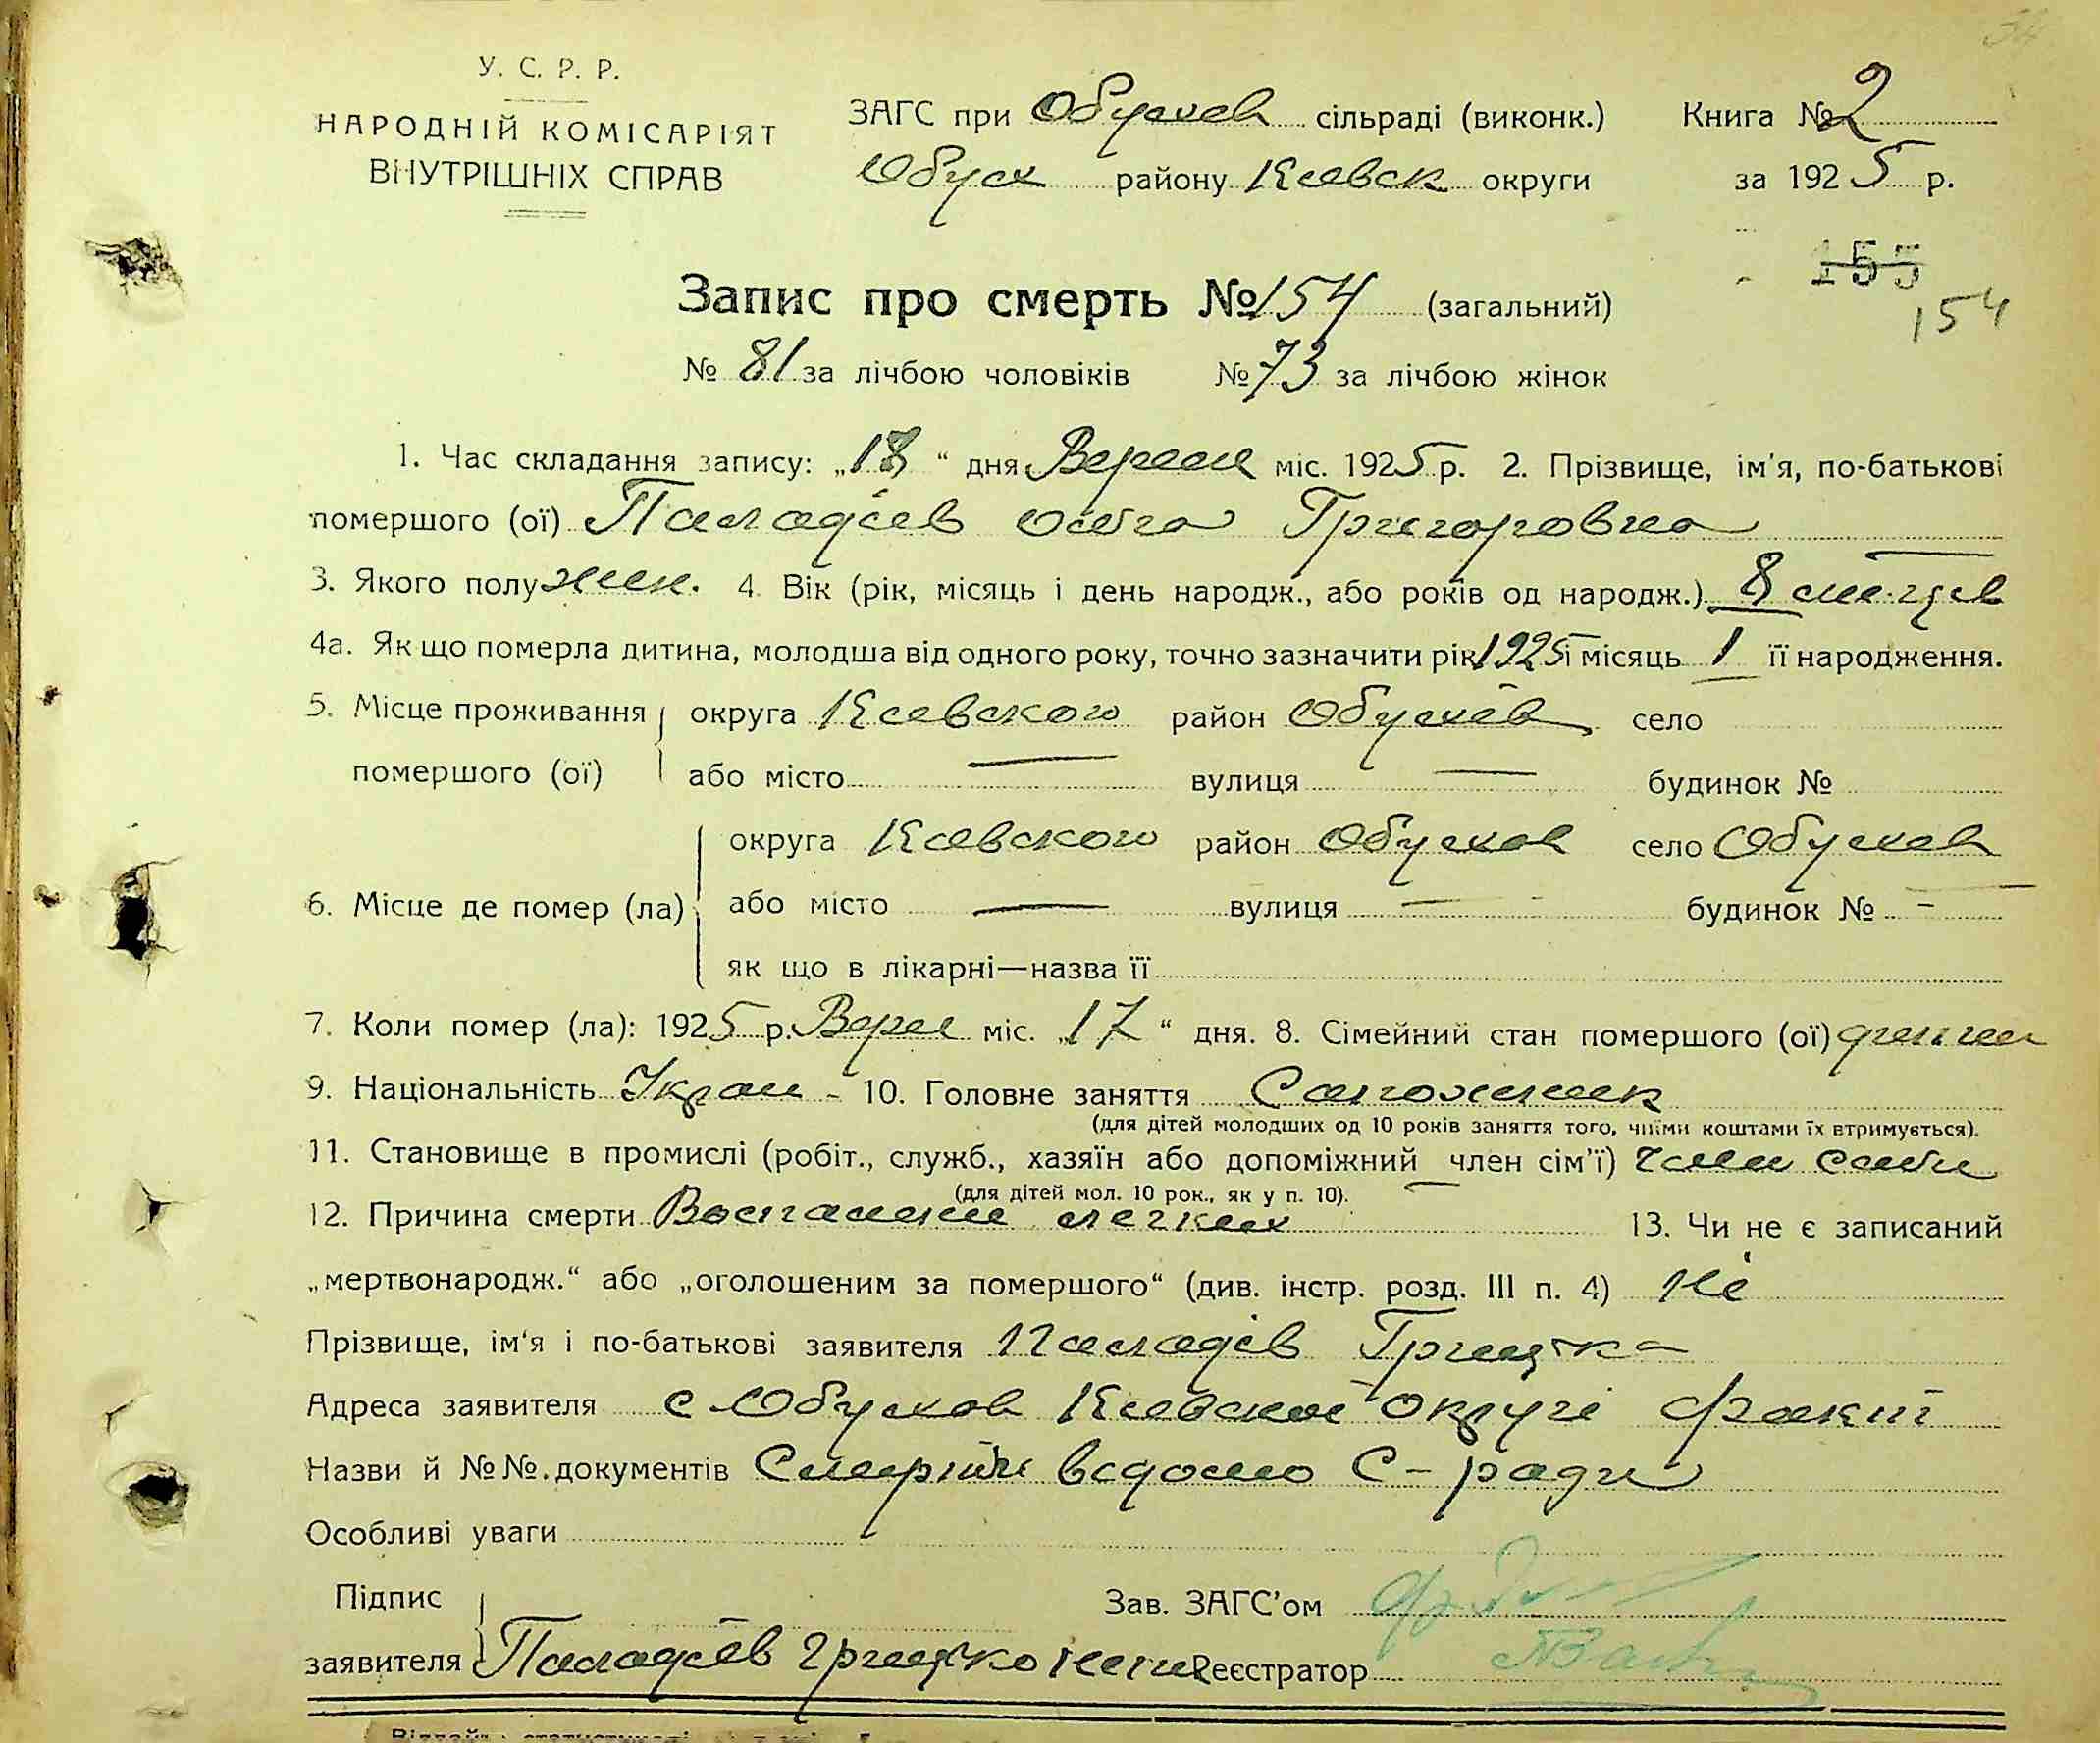 У. С. Р. Р.
НАРОДНІЙ КОМІСАРІЯТ
ВНУТРІШНІХ СПРАВ
ЗАГС при Обухов сільраді (виконк.)
Обух району Киевск округи
Книга № 2
за 1925 р.
155
154
Запис про смерть № 154 (загальний)
№ 81 за лічбою чоловіків № 73 за лічбою жінок
1. Час складання запису: „18“ дня Вересн міс. 1925 р. 2. Прізвище, ім'я, по-батькові
помершого (ої) Паладієв Ольга Григоровна
3. Якого полу жен. 4. Вік (рік, місяць і день народж., або років од народж.) 8 місяцев
4а. Як що померла дитина, молодша від одного року, точно зазначити рік 1925 і місяць 1 її народження.
5. Місце проживання помершого (ої) округа Киевского район Обухов село
або місто — вулиця — будинок №
6. Місце де помер (ла) округа Киевского район Обухов село Обухов
або місто — вулиця — будинок № -
як що в лікарні—назва її
7. Коли помер (ла): 1925 р. Верес міс. „17“ дня. 8. Сімейний стан помершого (ої)
9. Національність Украи - 10. Головне заняття Сапожник
(для дітей молодших од 10 років заняття того, чиїми коштами їх втримується).
11. Становище в промислі (робіт., служб., хазяїн або допоміжний член сім'ї) член семи
(для дітей мол. 10 рок., як у п. 10).
12. Причина смерти Воспаление легких 13. Чи не є записаний
„мертвонародж.“ або „оголошеним за помершого“ (див. інстр. розд. III п. 4) Не
Прізвище, ім'я і по-батькові заявителя Паладієв Грицька
Адреса заявителя с Обухов Киевской округі
Назви й №№. документів Смерть ведомо С-ради
Особливі уваги
Підпис заявителя Паладієв Грицько
Зав. ЗАГС'ом
Реєстратор